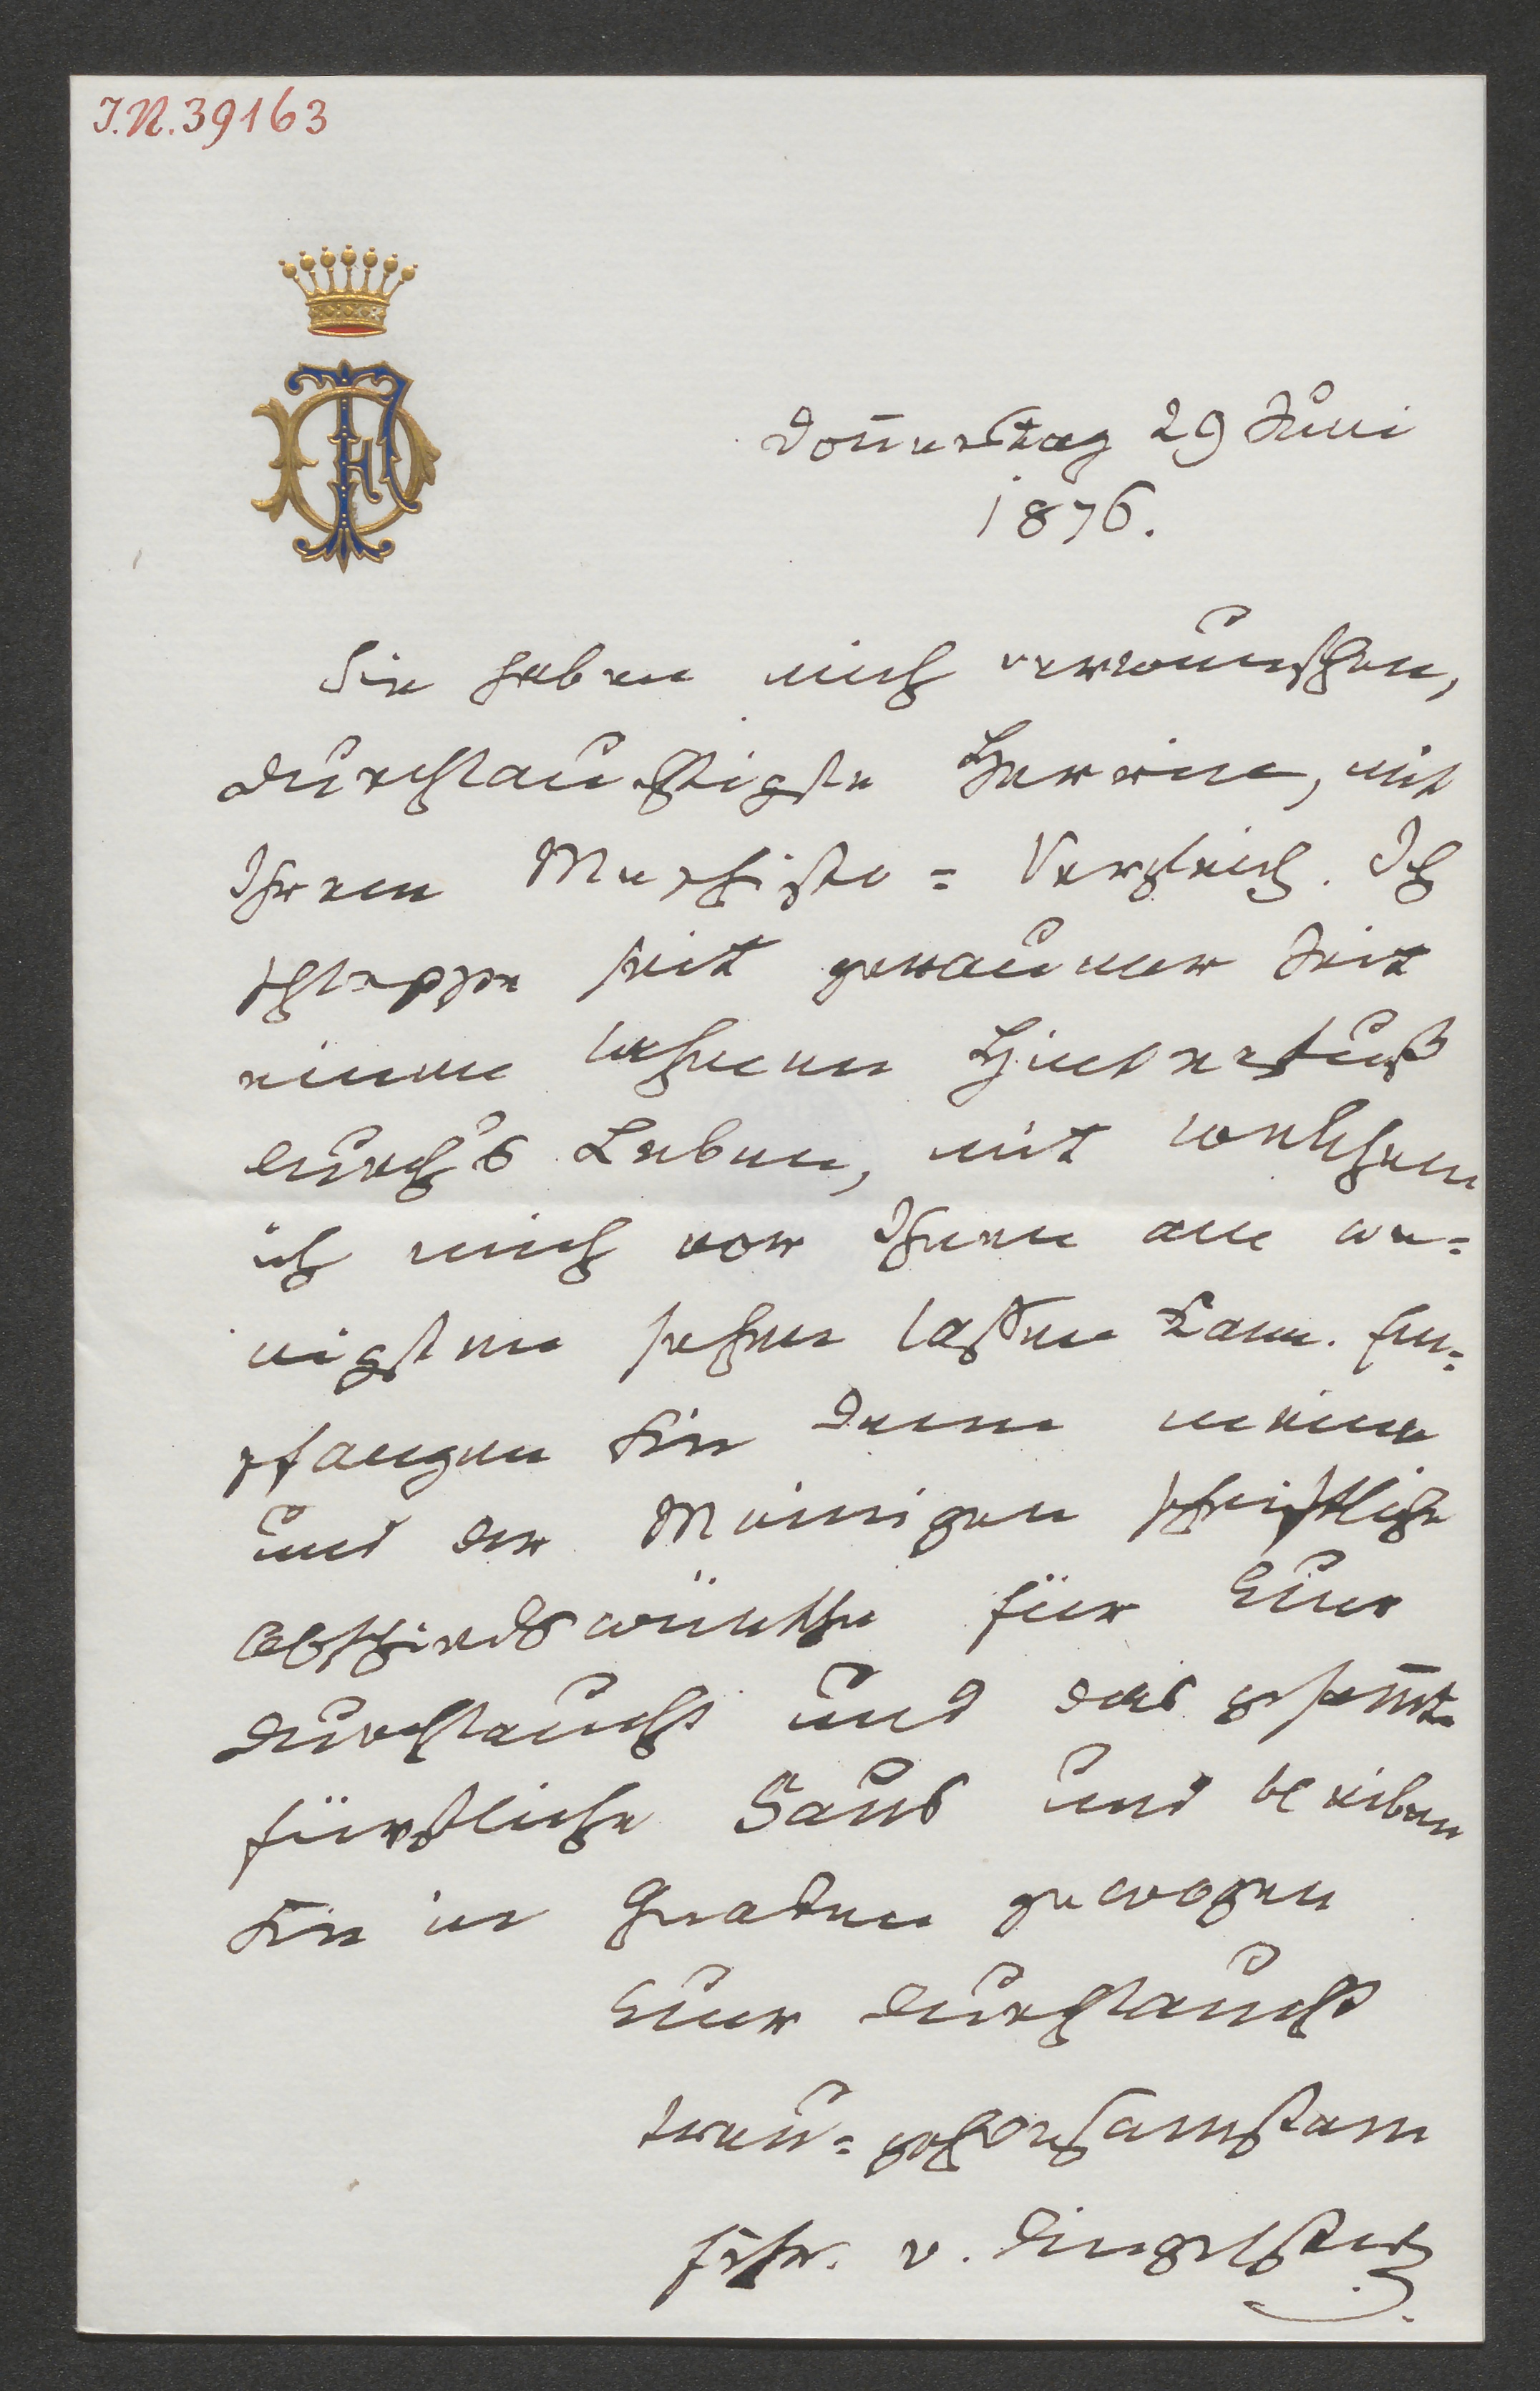 I.N. 39163
Donnerstag 29 Juni
1876.
Sie haben mich verwunschen,
durchlauchtigste Herrin, mit
Ihrem Mephisto-Vergleich. Ich
schleppe seit geraumer Zeit
einen lahmen Hinterfuß
durch's Leben, mit welchem
ich mich vor Ihnen am we-
nigsten sehen lassen kann. Em-
pfangen Sie denn meine
und der Meinigen schriftliche
Abschiedswünsche für Eure
Durchlaucht und das gesammte
fürstliche Haus und bleiben
Sie in Gnaden gewogen
Eurer Durchlaucht
treu-gehorsamstem
Frhr. v. Dingelstedt